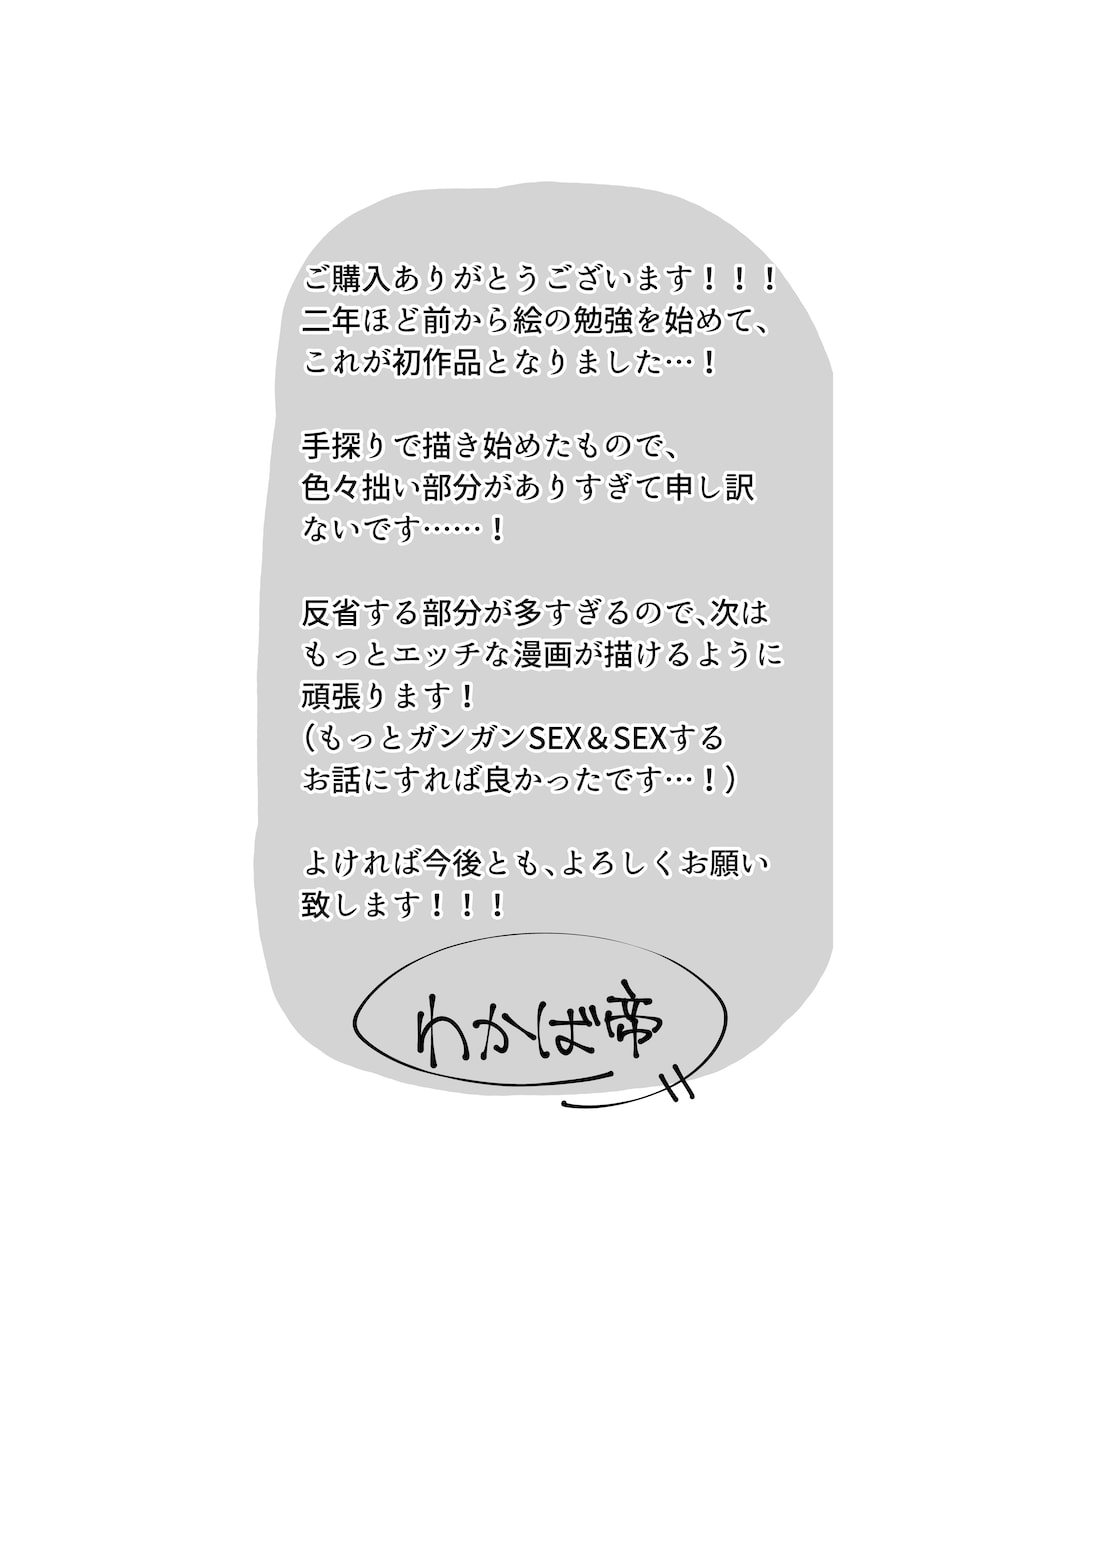 ご購入ありがとうございます！！！
二年ほど前から絵の勉強を始めて、
これが初作品となりました…！
手探りで描き始めたもので、
色々拙い部分がありすぎて申し訳
ないです……！
反省する部分が多すぎるので、次は
もっとエッチな漫画が描けるように
頑張ります！
（もっとガンガンSEX＆SEXする
お話にすれば良かったです…！）
よければ今後とも、よろしくお願い
致します！！！
わかば帝